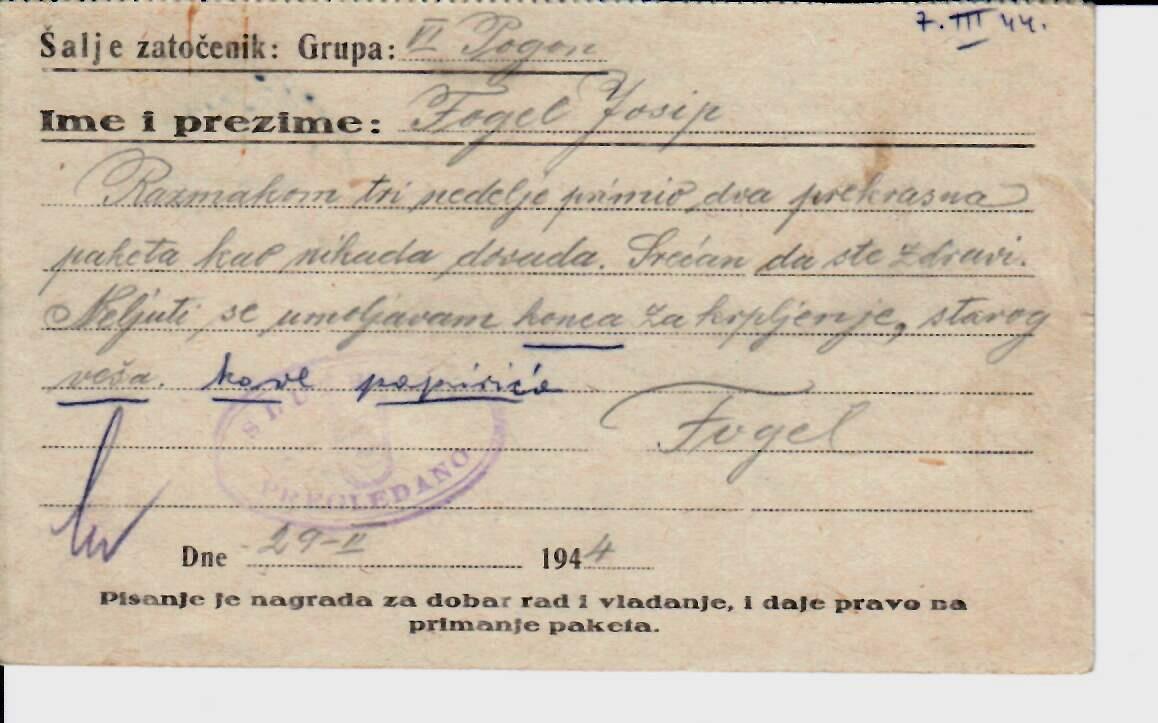 7. III 44.
Šalje zatočenik: Grupa: VI Pogon
Ime i prezime: Fogel Josip
Razmakom tri nedelje primio dva prekrasna
paketa kao nikada dosada. Srećan da ste zdravi.
Neljuti, se umoljavam konca za krpljenje, starog
veša. papirića
Fogel
PREGLEDANO
Dne 29-II 1944
Pisanje je nagrada za dobar rad i vladanje, i daje pravo na
primanje paketa.